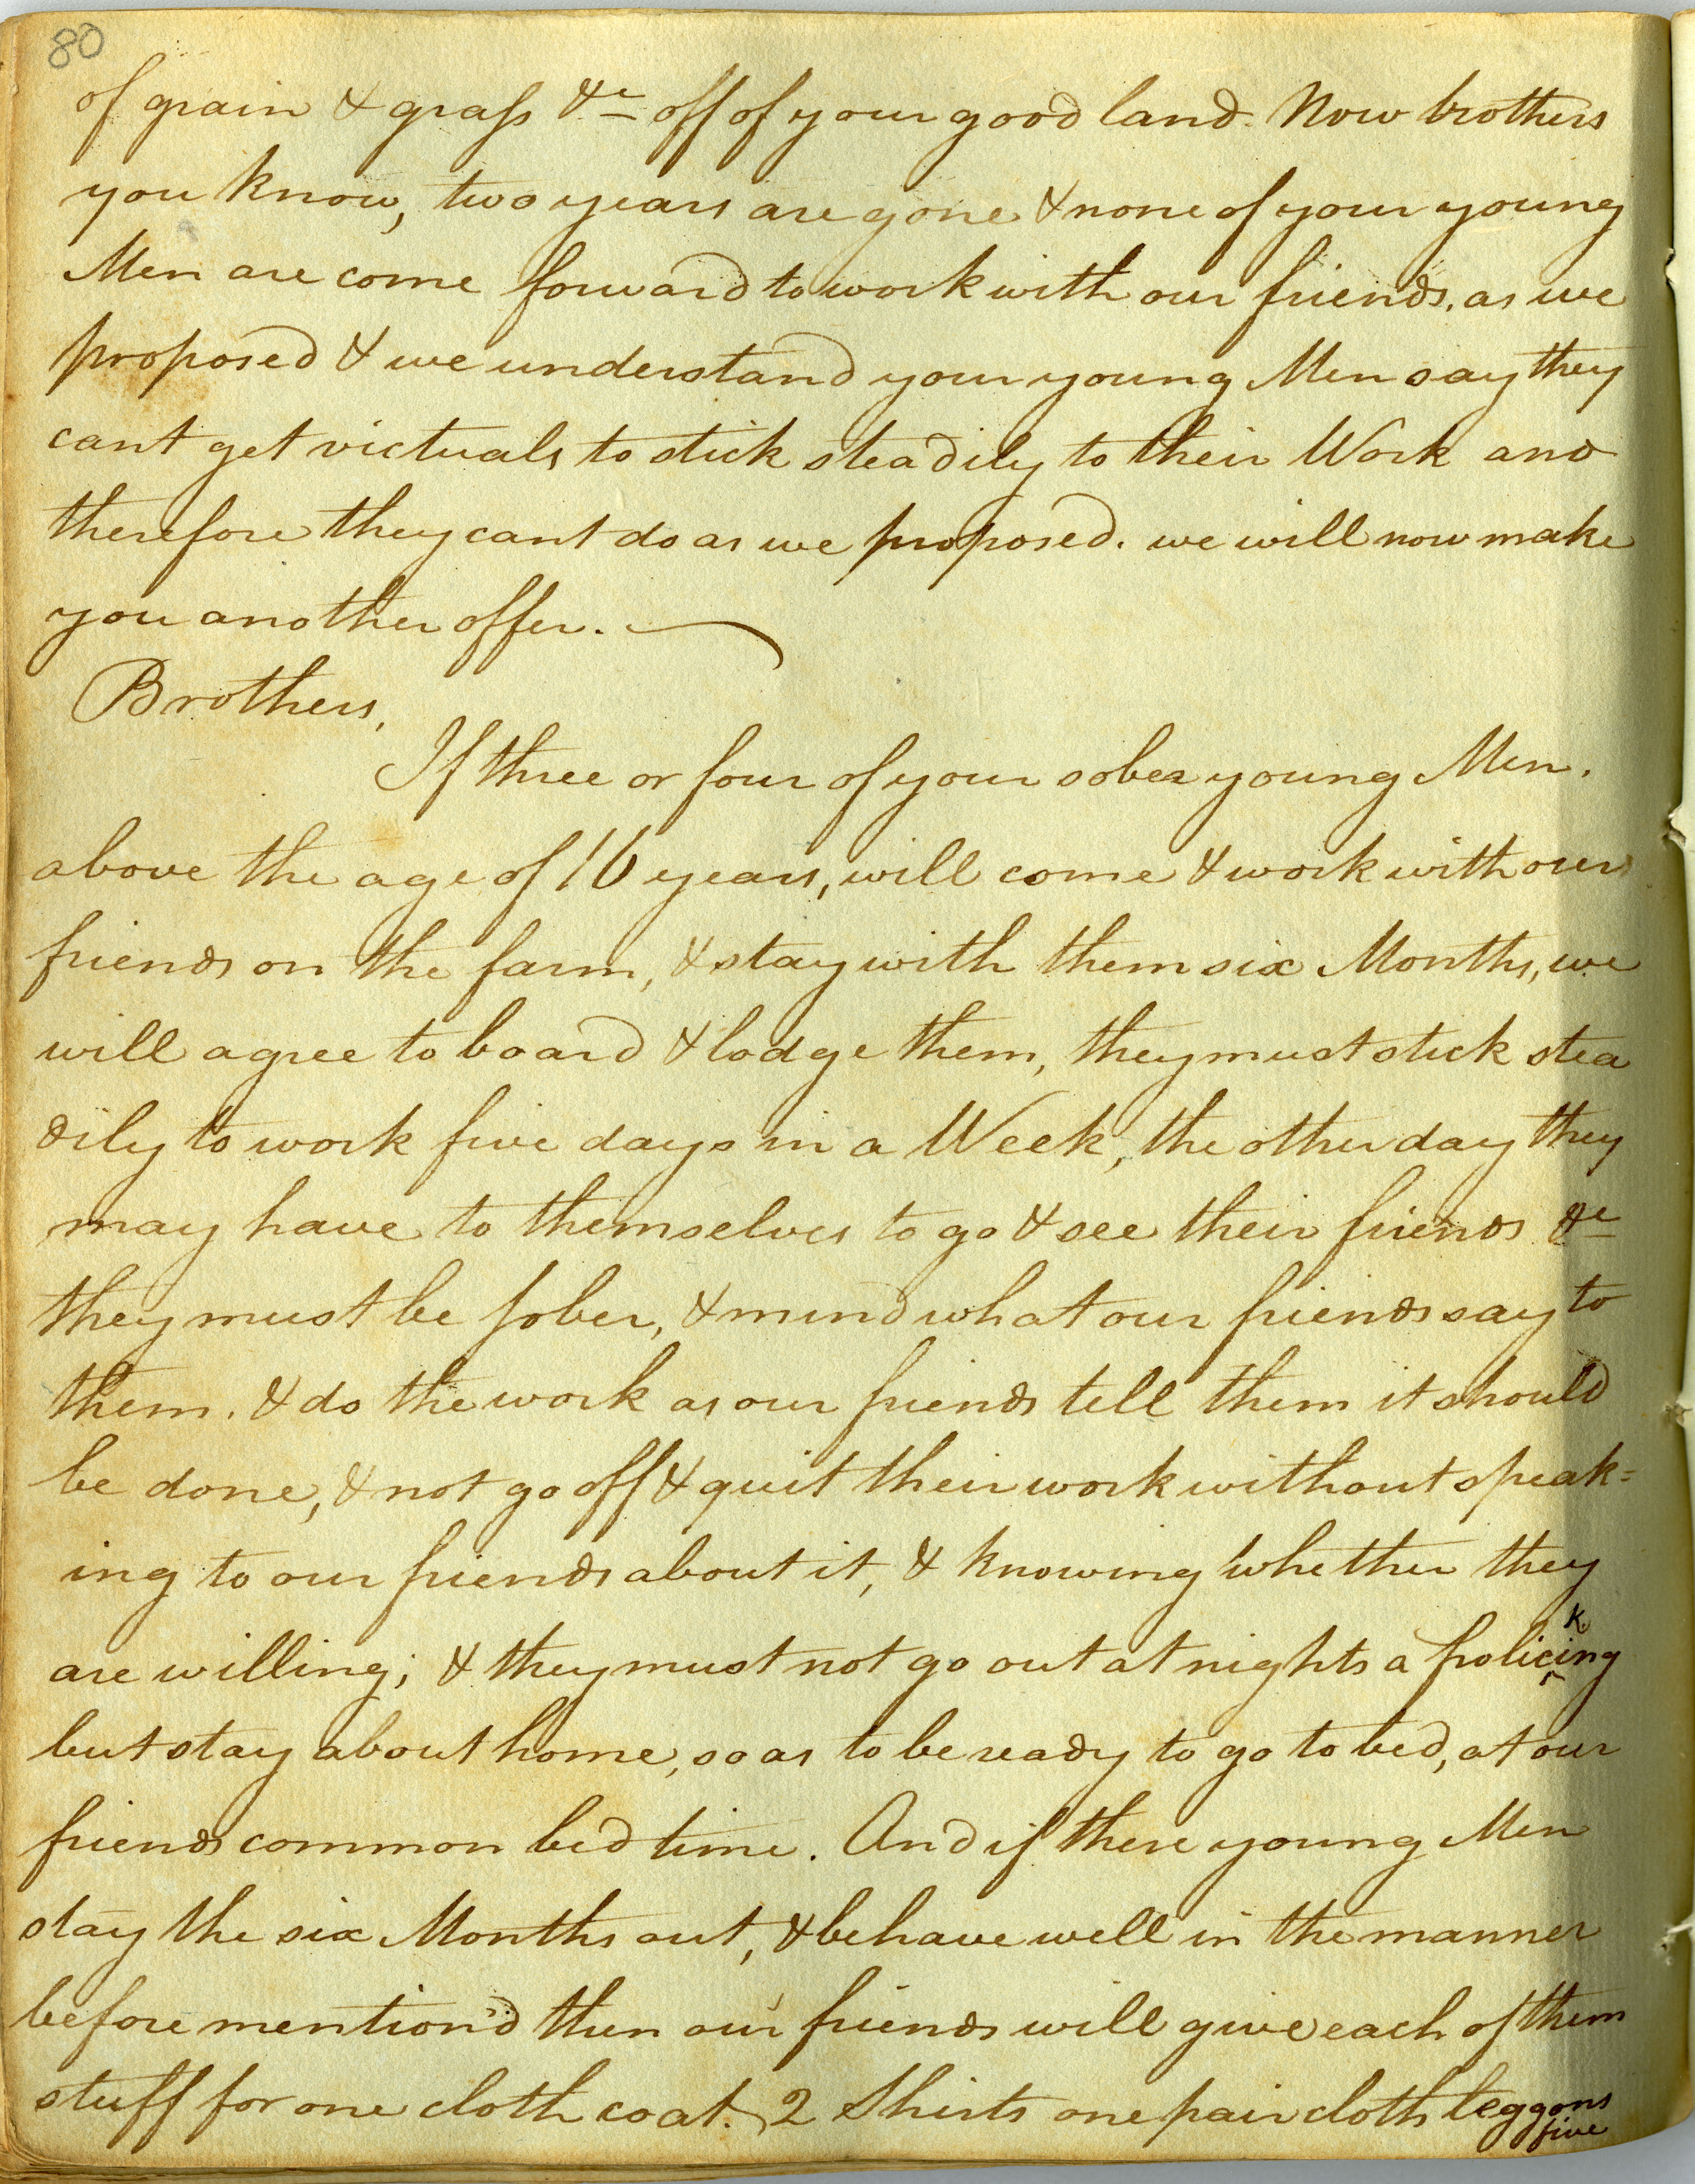 80
of grain & graſs &c off of your good land. Now brothers
you know, two years are gone & none of your young
Men are come forward to work with our friends, as we
proposed & we understand your young Men say they
cant get victuals to stick steadily to their Work and
therefore they cant do as we proposed. we will now make
you another offer.
Brothers,
If three or four of your sober young Men.
above the age of 16 years, will come & work with our
friends on the farm, & stay with them six Months, we
will agree to board & lodge them, they must stick stea
dily to work five days in a Week, the other day they
may have to themselves to go & see their friends &c
they must be ſober, & mind what our friends say to
them. & do the work as our friends tell them it should
be done, & not go off & quit their work without speak=
ing to our friends about it, & knowing whether they
are willing; & they must not go out at nights a frolicking
but stay about home, so as to be ready to go to bed, at our
friends common bed time. And if these young Men
stay the six Months out, & behave well in the manner
before mention'd then our friends will give each of them
stuff for one cloth coat. 2 Shirts one pair cloth leggons
five